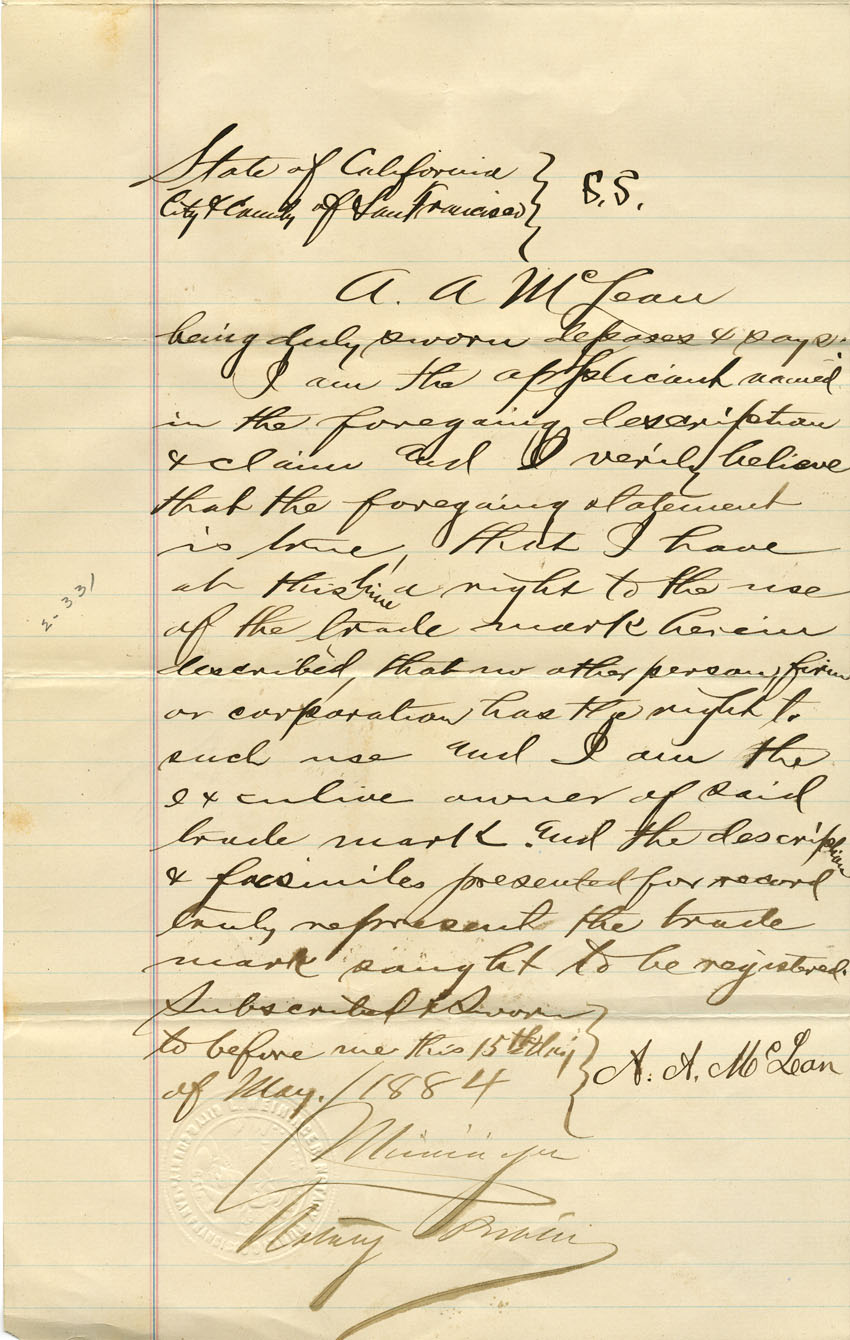 State of California } S.S.
City & County of San Francisco }
A. A McLean
being duly sworn deposes & says.
I am the applicant named
in the foregoing description
& claim and I verily believe
that the foregoing statement
is true, that I have
at this time a right to the use
of the trade mark herein
described, that no other person, firm
or corporation has the right to
such use and I am the
exculive owner of said
trade mark. and the description
& facsimiles presented for record
truly represent the trade
mark sought to be registered.
Subscribed & Sworn
to before me this 15th day
of May. 1884
A. A. McLean
Notary Public
2-331